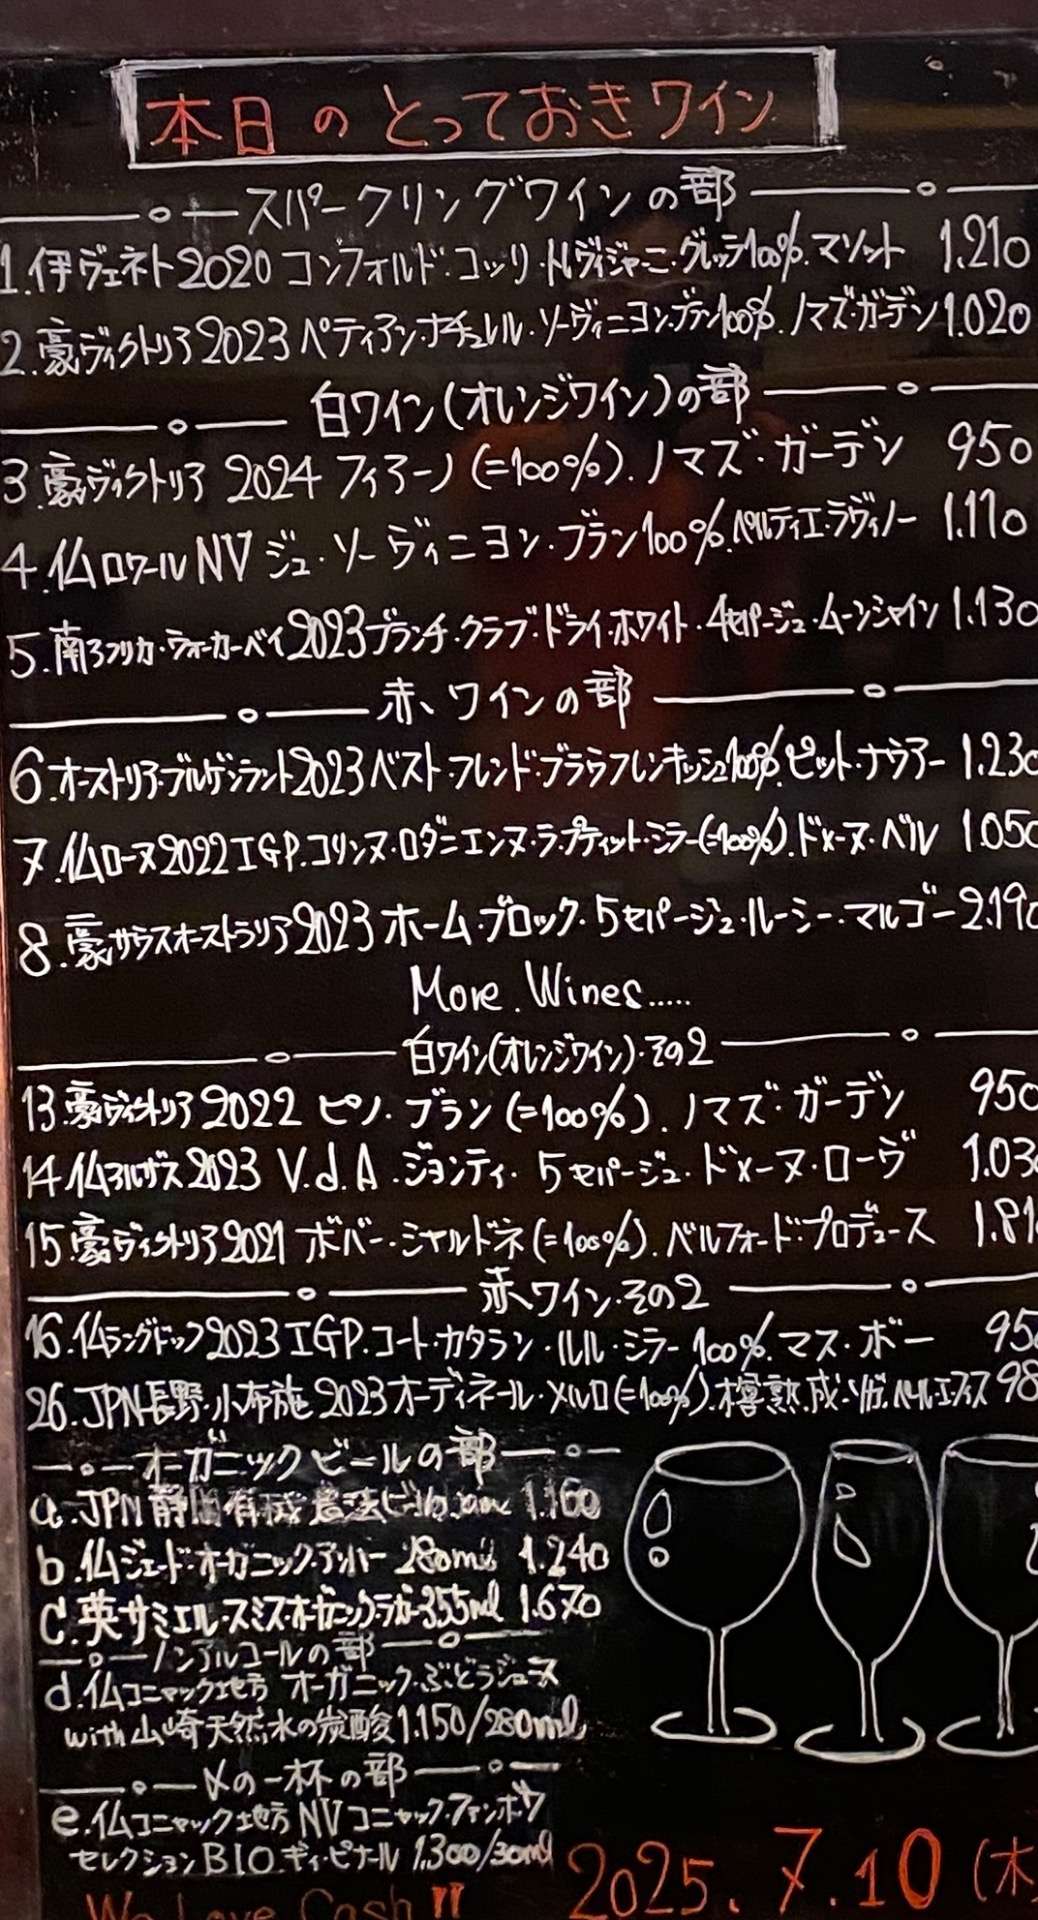 本日のとっておきワイン
スパークリングワインの部
1.伊ヴェネト2020コンフォルド・コッリ・トレヴィジャーニ・グレッラ100%.マソット 1.210
2.豪ヴィクトリア2023ペティアン・ナチュレル・ソーヴィニヨン・ブラン100%.ノマズ・ガーデン1.020
白ワイン(オレンジワイン)の部
3.豪ヴィクトリア 2024 フィアーノ(=100%).ノマズ・ガーデン 950
4.仏ロワールNV ジュ・ソーヴィニヨン・ブラン100%.ペルティエ・ラヴィノー 1.110
5.南アフリカ・ウォーカーベイ2023ブランチ・クラブ・ドライ・ホワイト・4セパージュ・ムーンシャイン 1.130
赤ワインの部
6.オーストリア・ブルゲンラント2023ベスト・フレンド・ブラウフレンキッシュ100%.ピット・ナウアー 1.230
7.仏ローヌ2022IGP.コリンヌ・ロダニエンヌ・ラ・プティット・シラー(=100%).ドメーヌ・ベル 1.050
8.豪サウスオーストラリア2023ホーム・ブロック・5セパージュ・ルーシー・マルゴー2.190
More.Wines.....
白ワイン(オレンジワイン)・その2
13.豪ヴィクトリア2022 ピノ・ブラン(=100%).ノマズ・ガーデン 950
14仏アルザス2023 V.d.A.ジョンティ・5セパージュ・ドメーヌ・ローヴ 1.03
15.豪ヴィクトリア2021 ボバー・シャルドネ(=100%).ベルフォード・プロデュース 1.81
赤ワイン・その2
16.仏ラングドック2023IGP.コート・カタラン・ルル・シラー100%.マス・ボー 95
26.JPN長野・小布施 2023オーディネール・メルロ(=100%).樽熟成・ソガ・ペール・エフィス98
オーガニックビールの部
a.JPN静岡有機農法ビール 1.160
b.仏ジェード・オーガニック・アンバー 280ml 1.240
c.英サミエル・スミス・オーガニック・ラガー355ml 1.670
ノンアルコールの部
d.仏コニャック地方 オーガニック・ぶどうジュース
with山崎天然水の炭酸1.150/280ml
〆の一杯の部
e.仏コニャック地方NVコニャック・ファンボワ
セレクションBIO.ギィ・ピナール 1.300/30ml
We Love Cash!!
2025.7.10(木